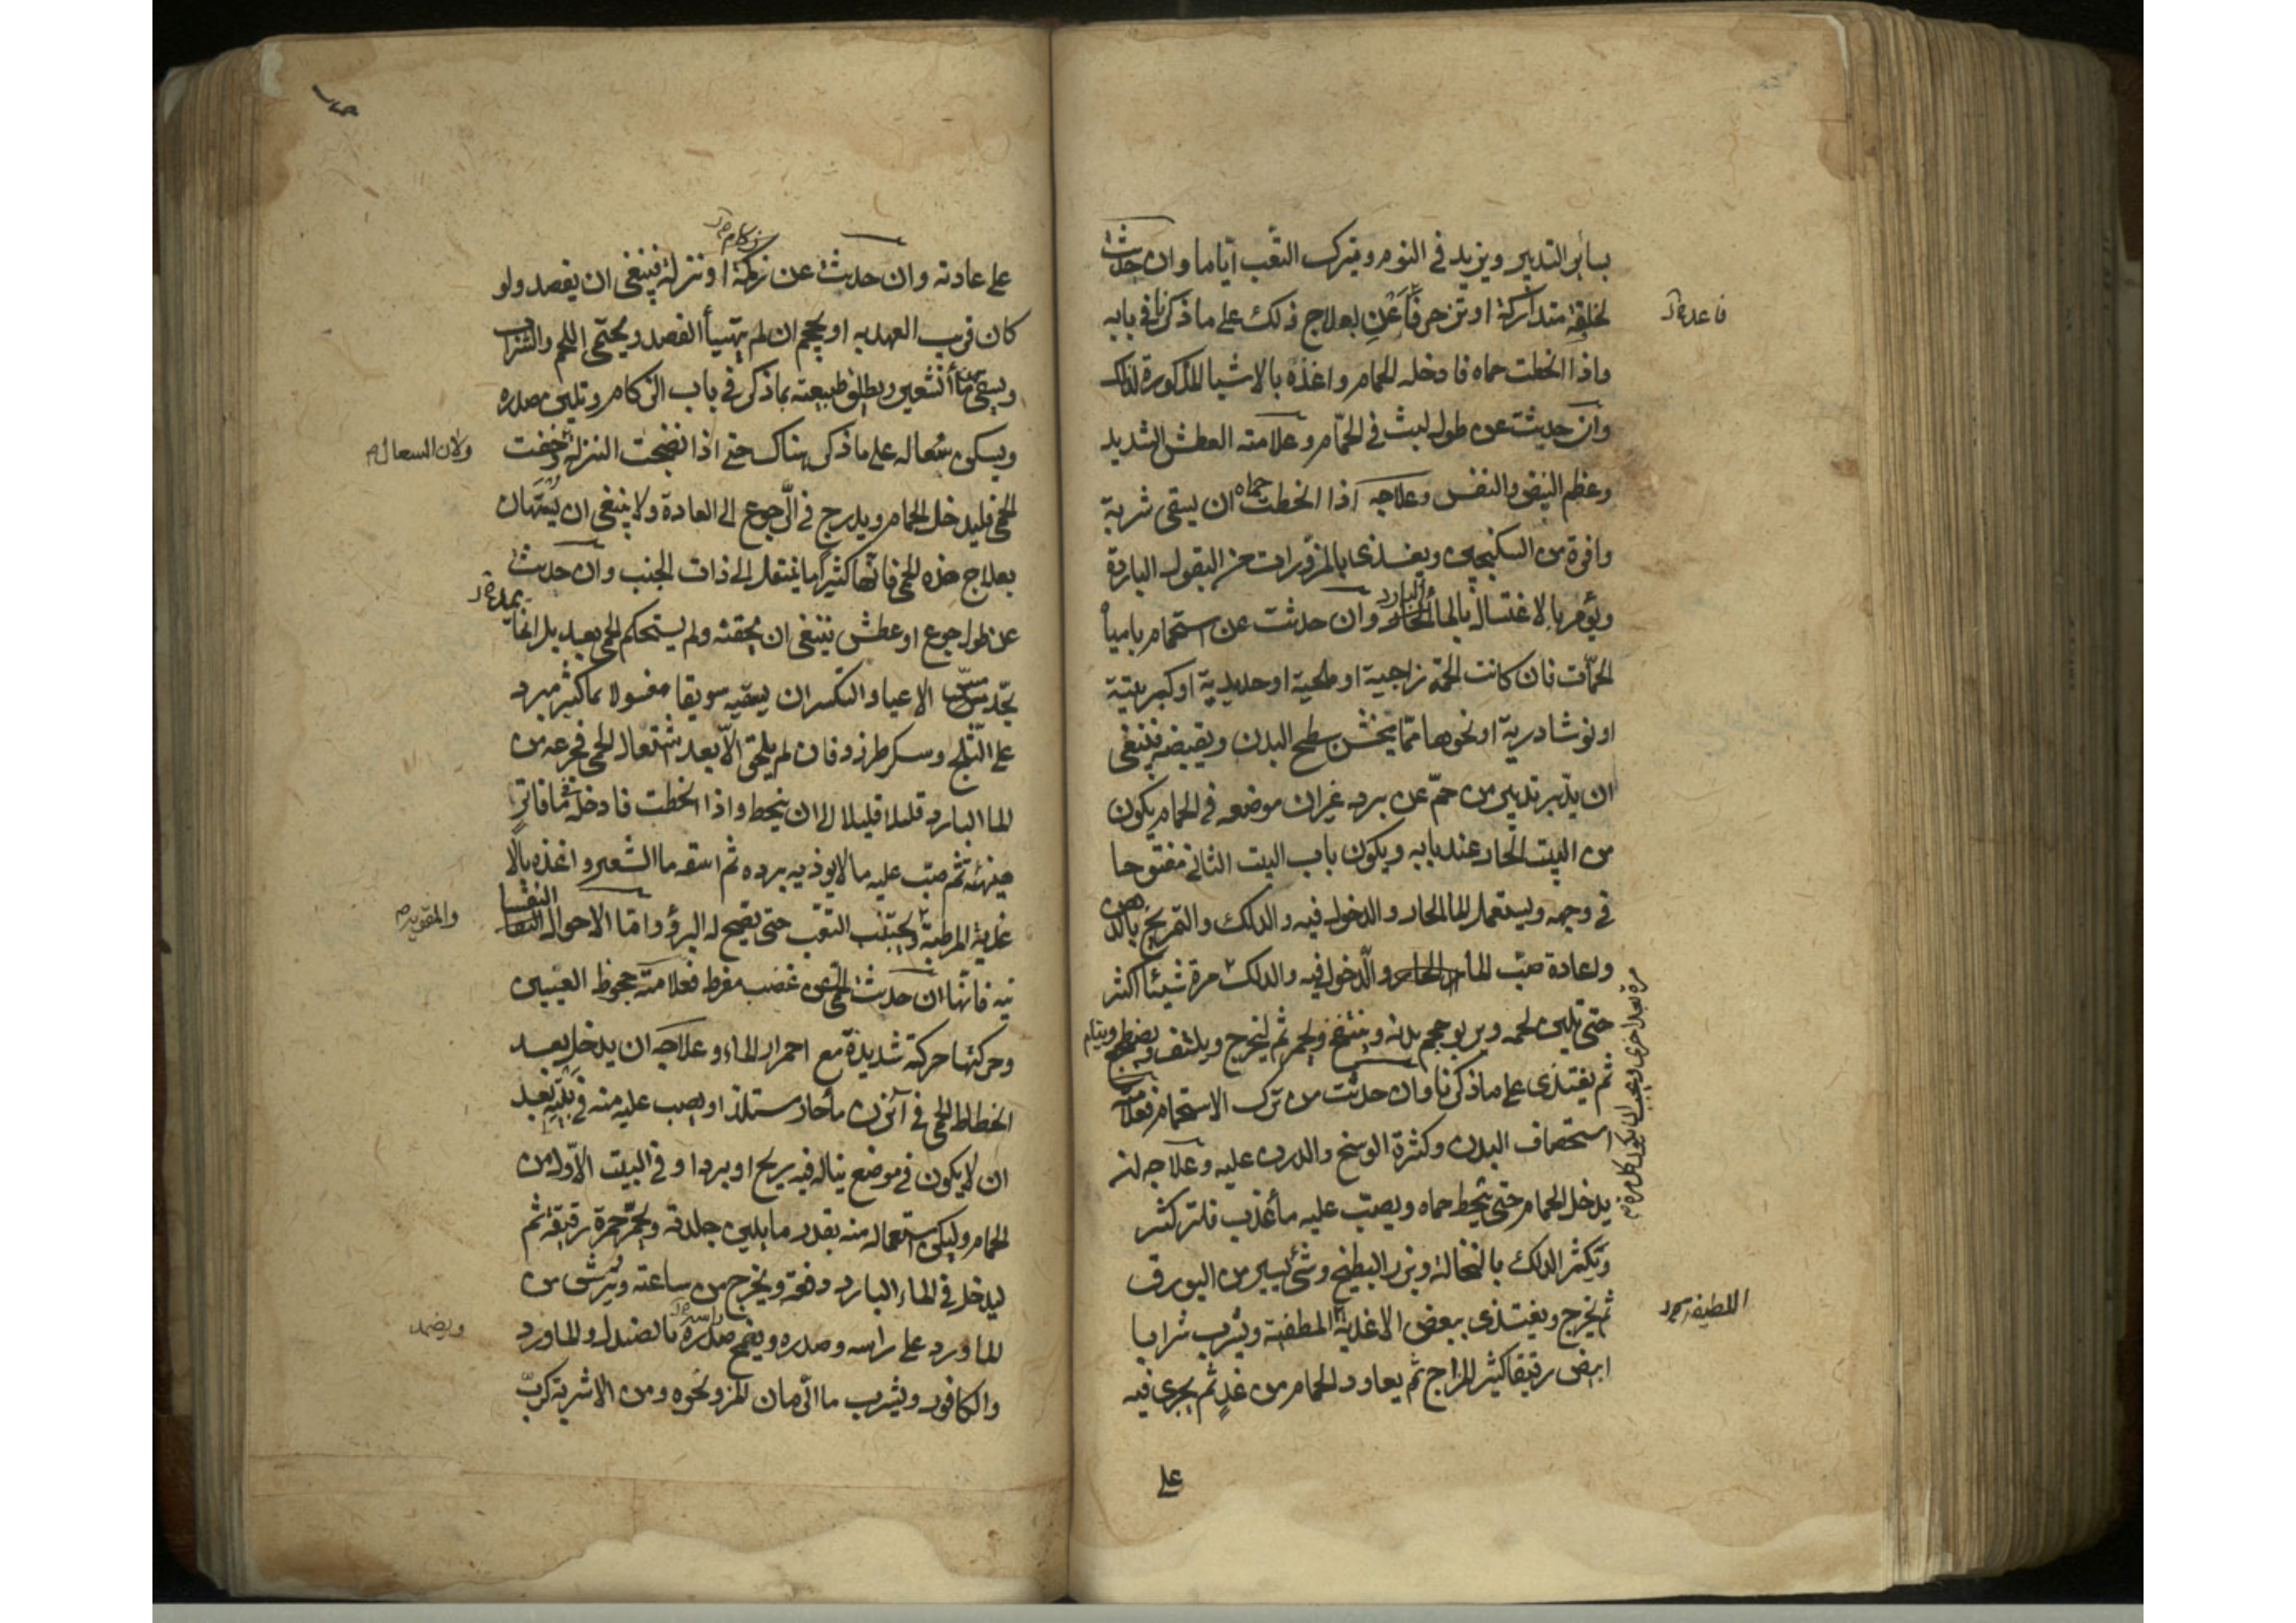 بسائر التدبير ويزيد في النوم ويترك التعب اياما وان حدثت
لخلفة متداركة او تزحر فاعن بعلاج ذلك على ما ذكرنا في بابه
فاعدم
واذا انحطت حماه فادخله الحمام واغذه بالاشيا المذكورة لذلك
وان حدثت عن طول لبث في الحمّام وعلامته العطش الشديد
وعظم النبض والنفس وعلاجه اذا انحطت حماه ان يسقى شربة
وافرة من السكنجبين ويغذى بالمزورات من البقول الباردة
ويؤمر بالاغتسال بالما البارد وان حدثت عن استحمام بامياه
الحمّات فان كانت الحمة زاجية او ملحية او حديدية او كبريتية
او نوشادرية او نحوها ممّا يخشن سطح البدن ويقبضه فينبغي
ان يدبر تدبير من حمّ عن برد غير ان موضعه في الحمام يكون
من البيت الحار عند بابه ويكون باب البيت الثاني مفتوحا
في وجهه ويستعمل الما الحار والدخول فيه والدلك والتمريخ بالدهن
ولعادة صبّ الما الحار والدخول فيه والدلك مرة شيئا اكثر
حتى يلين لحمه ويربو حجم بدنه وينتفخ ويحمر ثم ليخرج ويلتف ويضطجع وينام
مرة بعد اخرى ويجب ان يكون كل مرة
ثم يغتذى على ما ذكرنا وان حدثت من ترك الاستحمام فعلامته
استحصاف البدن وكثرة الوسخ والدرن عليه وعلاجه ان
يدخل الحمام حتى تنحط حماه ويصبّ عليه ما عذب فاتر كثير
ويكثر الدلك بالنخالة وبزر البطيخ وشئ يسير من البورق
ثم يخرج ويغتذى ببعض الاغذية المطفية ويشرب شرابا
اللطيفه
ابيض رقيقا كثير المزاج ثم يعاود الحمام من غد ثم يجرى فيه
على
على عادته وان حدثت عن زكمة او نزلة فينبغى ان يفصد ولو
زكام
كان قريب العهد به او يحجم ان لم يتهيأ الفصد ويحتمى اللحم والشراب
ويسقى ما الشعير ويطلق طبيعته بما ذكر في باب الزكام وتليين صدره
ويسكن سعاله على ما ذكر هناك حتى اذا نضجت النزلة وخفت
ولان السعال
الحمى فليدخل الحمام ويدرج في الرجوع الى العادة ولا ينبغى ان يتهان
بعلاج هذه الحمى فانها كثيرا ما ينتقل الى ذات الجنب وان حدثت
عن طول جوع او عطش ينبغى ان محقته ولم يستحكم الحمى بعد بل انما
تجد مسّ الاعيا والتكسر ان يسقيه سويقا مغسولا بما كثير مبرد
على الثلج وسكر طبرزد فان لم يلحق الاّ بعد اشتعال الحمى فجرعه من
الما البارد قليلا قليلا الى ان ينحط واذا انحطت فادخله ما فاتر
حينئذ ثم صبّ عليه ما لا يوذيه برده ثم اسقه ما الشعير واغذه بالا
غذية المرطبة ويجتنب التعب حتى يصح له البرؤ واما الاحوال النفسا
والمقويه
نيه فانها ان حدثت الحمى عن غضب مفرط فعلامته جحوظ العينين
وحركتها حركة شديدة مع احمرار الماء وعلاجه ان يدخل بعد
انحطاط الحمى في آبزن ما حار مستلذ او يصب عليه منه في بيته بعد
ان لا يكون في موضع يناله فيه ريح او برد او في البيت الاول من
الحمام وليكن استعماله منه بقدر ما يلين جلدته ويحمّر حمرة رقيقة ثم
ليدخل في الماء البارد دفعة ويخرج من ساعته ويرش من
الماورد على راسه وصدره ويضمخ صدره بالصندل والماورد
راسه
ويضمد
والكافور ويشرب ما الرمان المز ونحوه ومن الاشربة كربّ